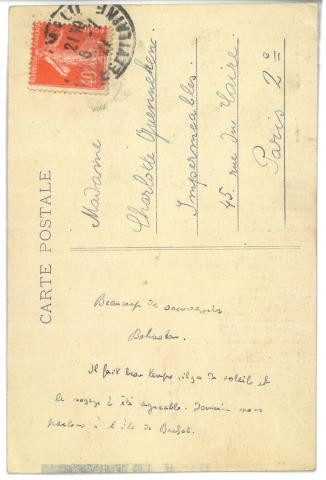 CARTE POSTALE
Madame
Charlotte Quenneken
Imperméables.
45 rue du Caire
Paris 2e
Beaucoup de souvenirs
Il fait beau temps, il y a du soleil et
le voyage a été agreable. Demain nous
partons à l'île de Brehat.